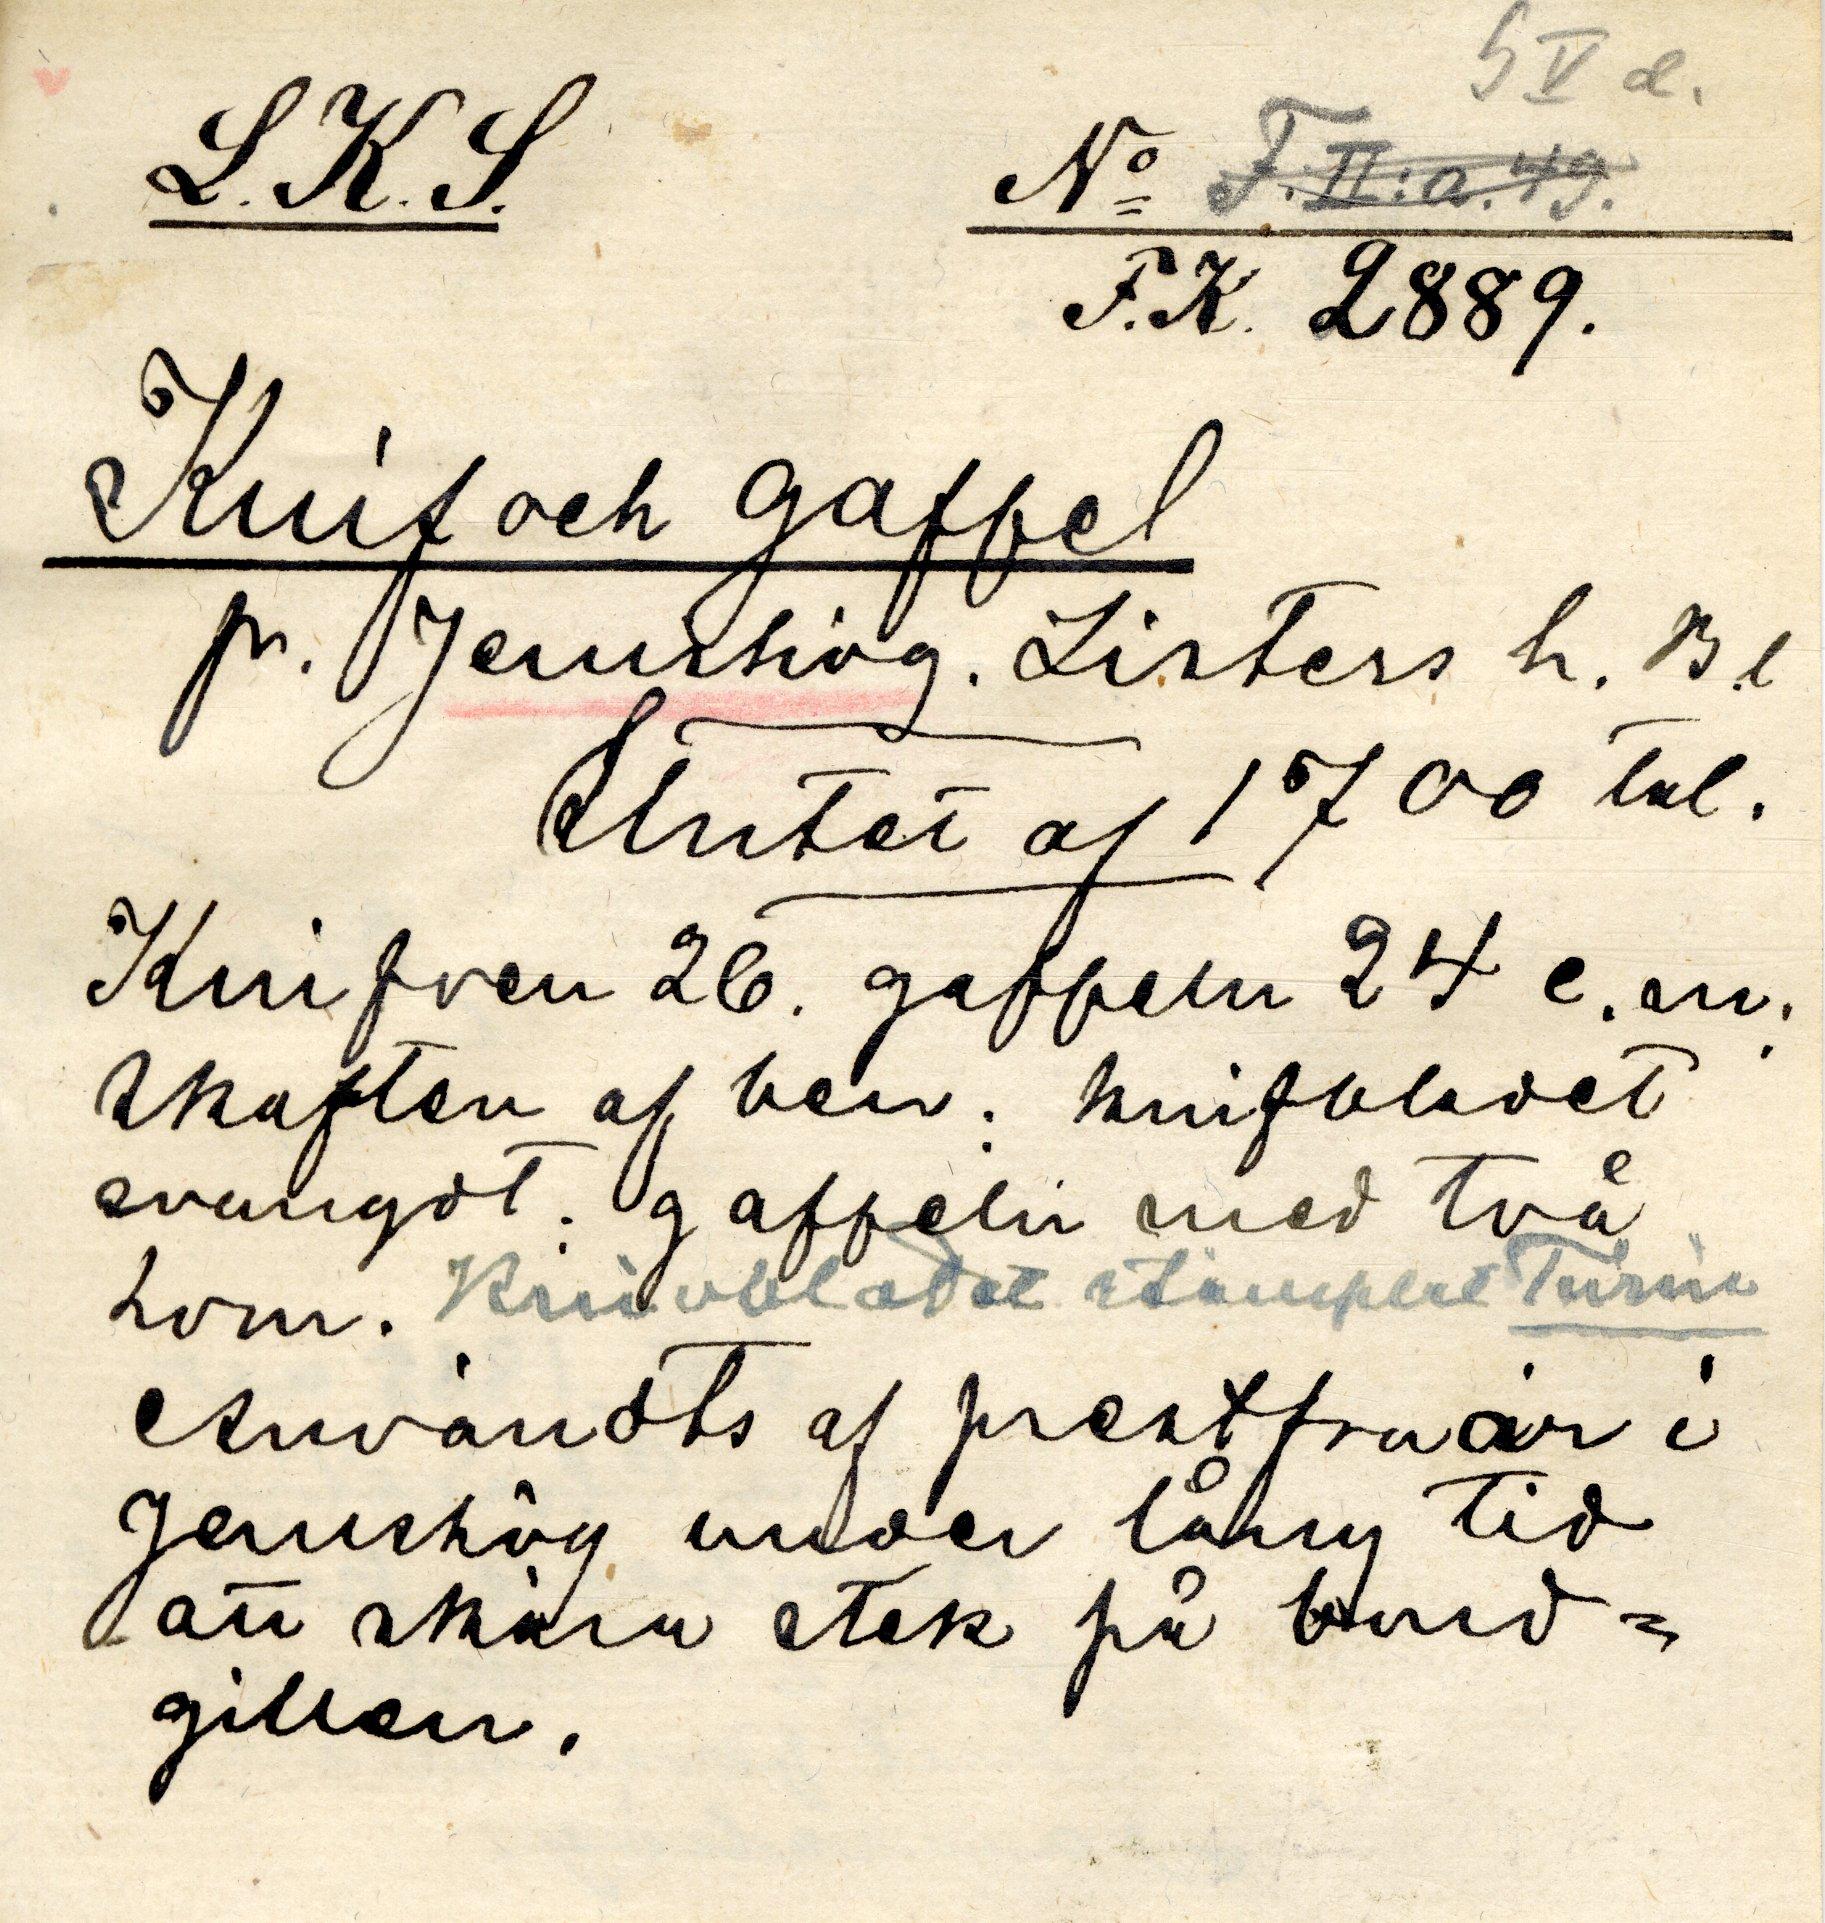 5 V d.
L.K.S.
No F.II:a.49.
F.K. 2889.
Knif och gaffel
fr. Jemshög. Listers h. Bl
Slutet af 1700 tal.
Knifven 26. gaffeln 24 c.m.
skaften af ben; knifbladet
svängdt; gaffeln med två
horn. Knivbladet stämplat
Användts af prestfruar i
Jemshög under lång tid
att skära stek på bond=
gillen.